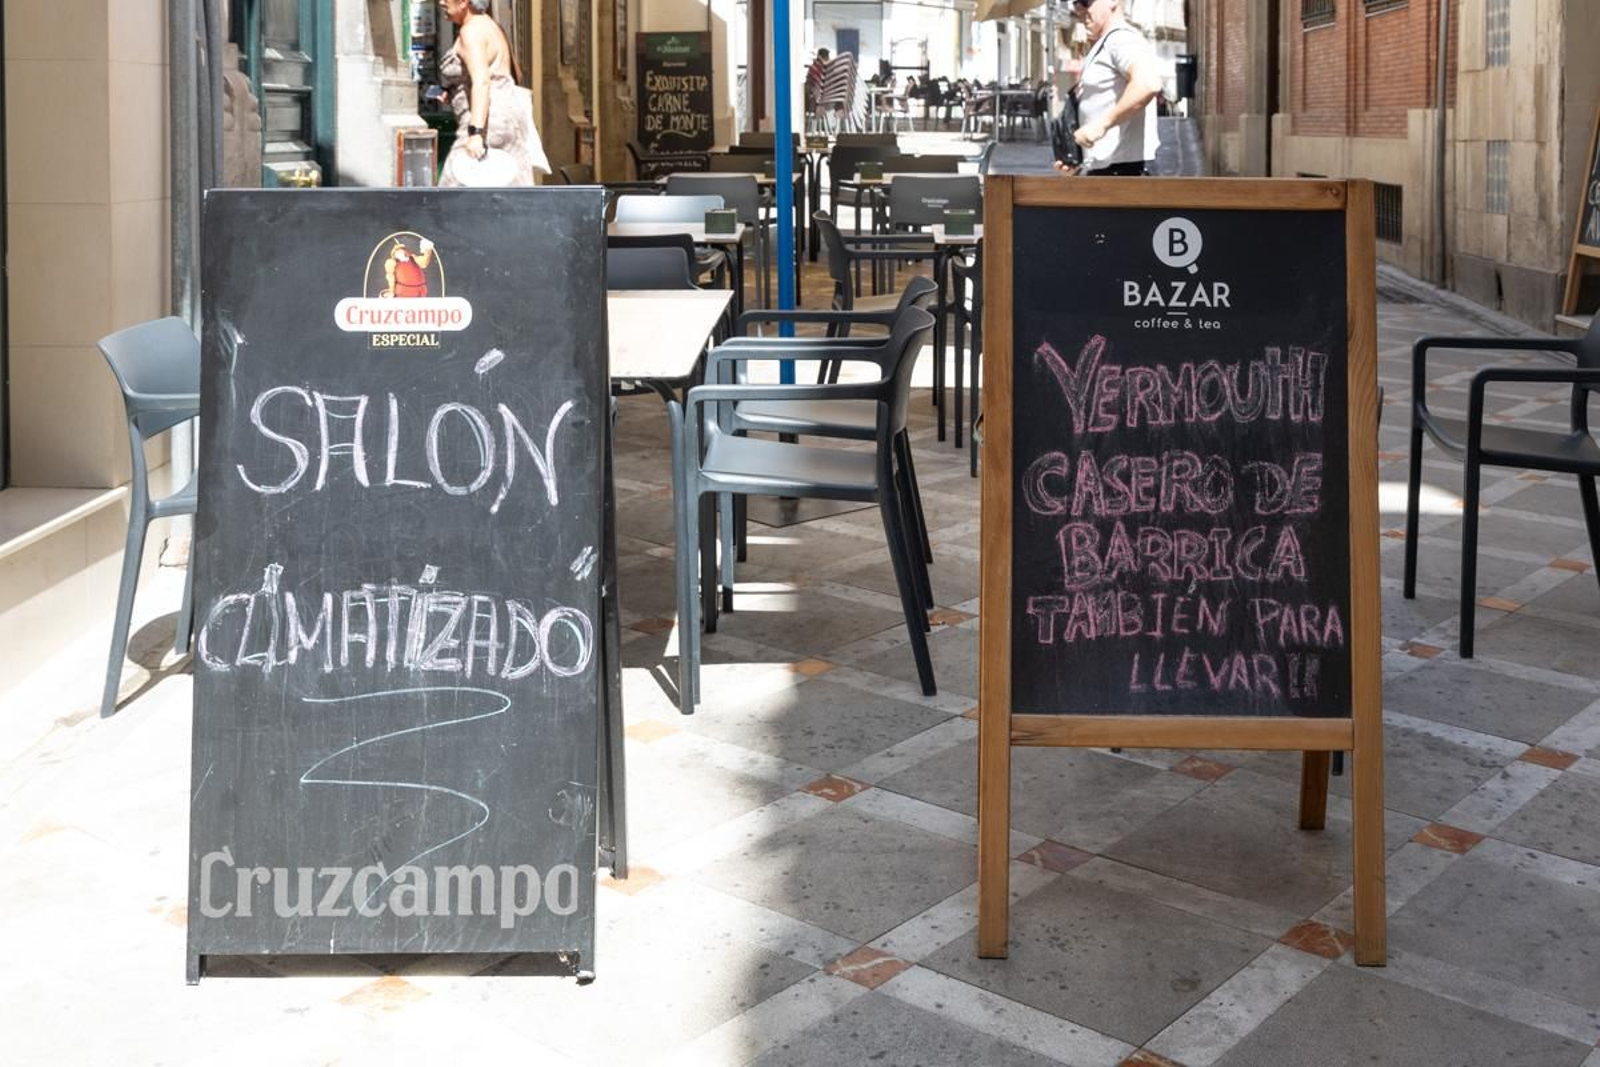 EXQUISITA
CARNE
DE MONTE
Cruzcampo
ESPECIAL
SALÓN
CLIMATIZADO
Cruzcampo
B
BAZAR
coffee & tea
VERMOUTH
CASERO DE
BARRICA
TAMBIÉN PARA
LLEVAR!!